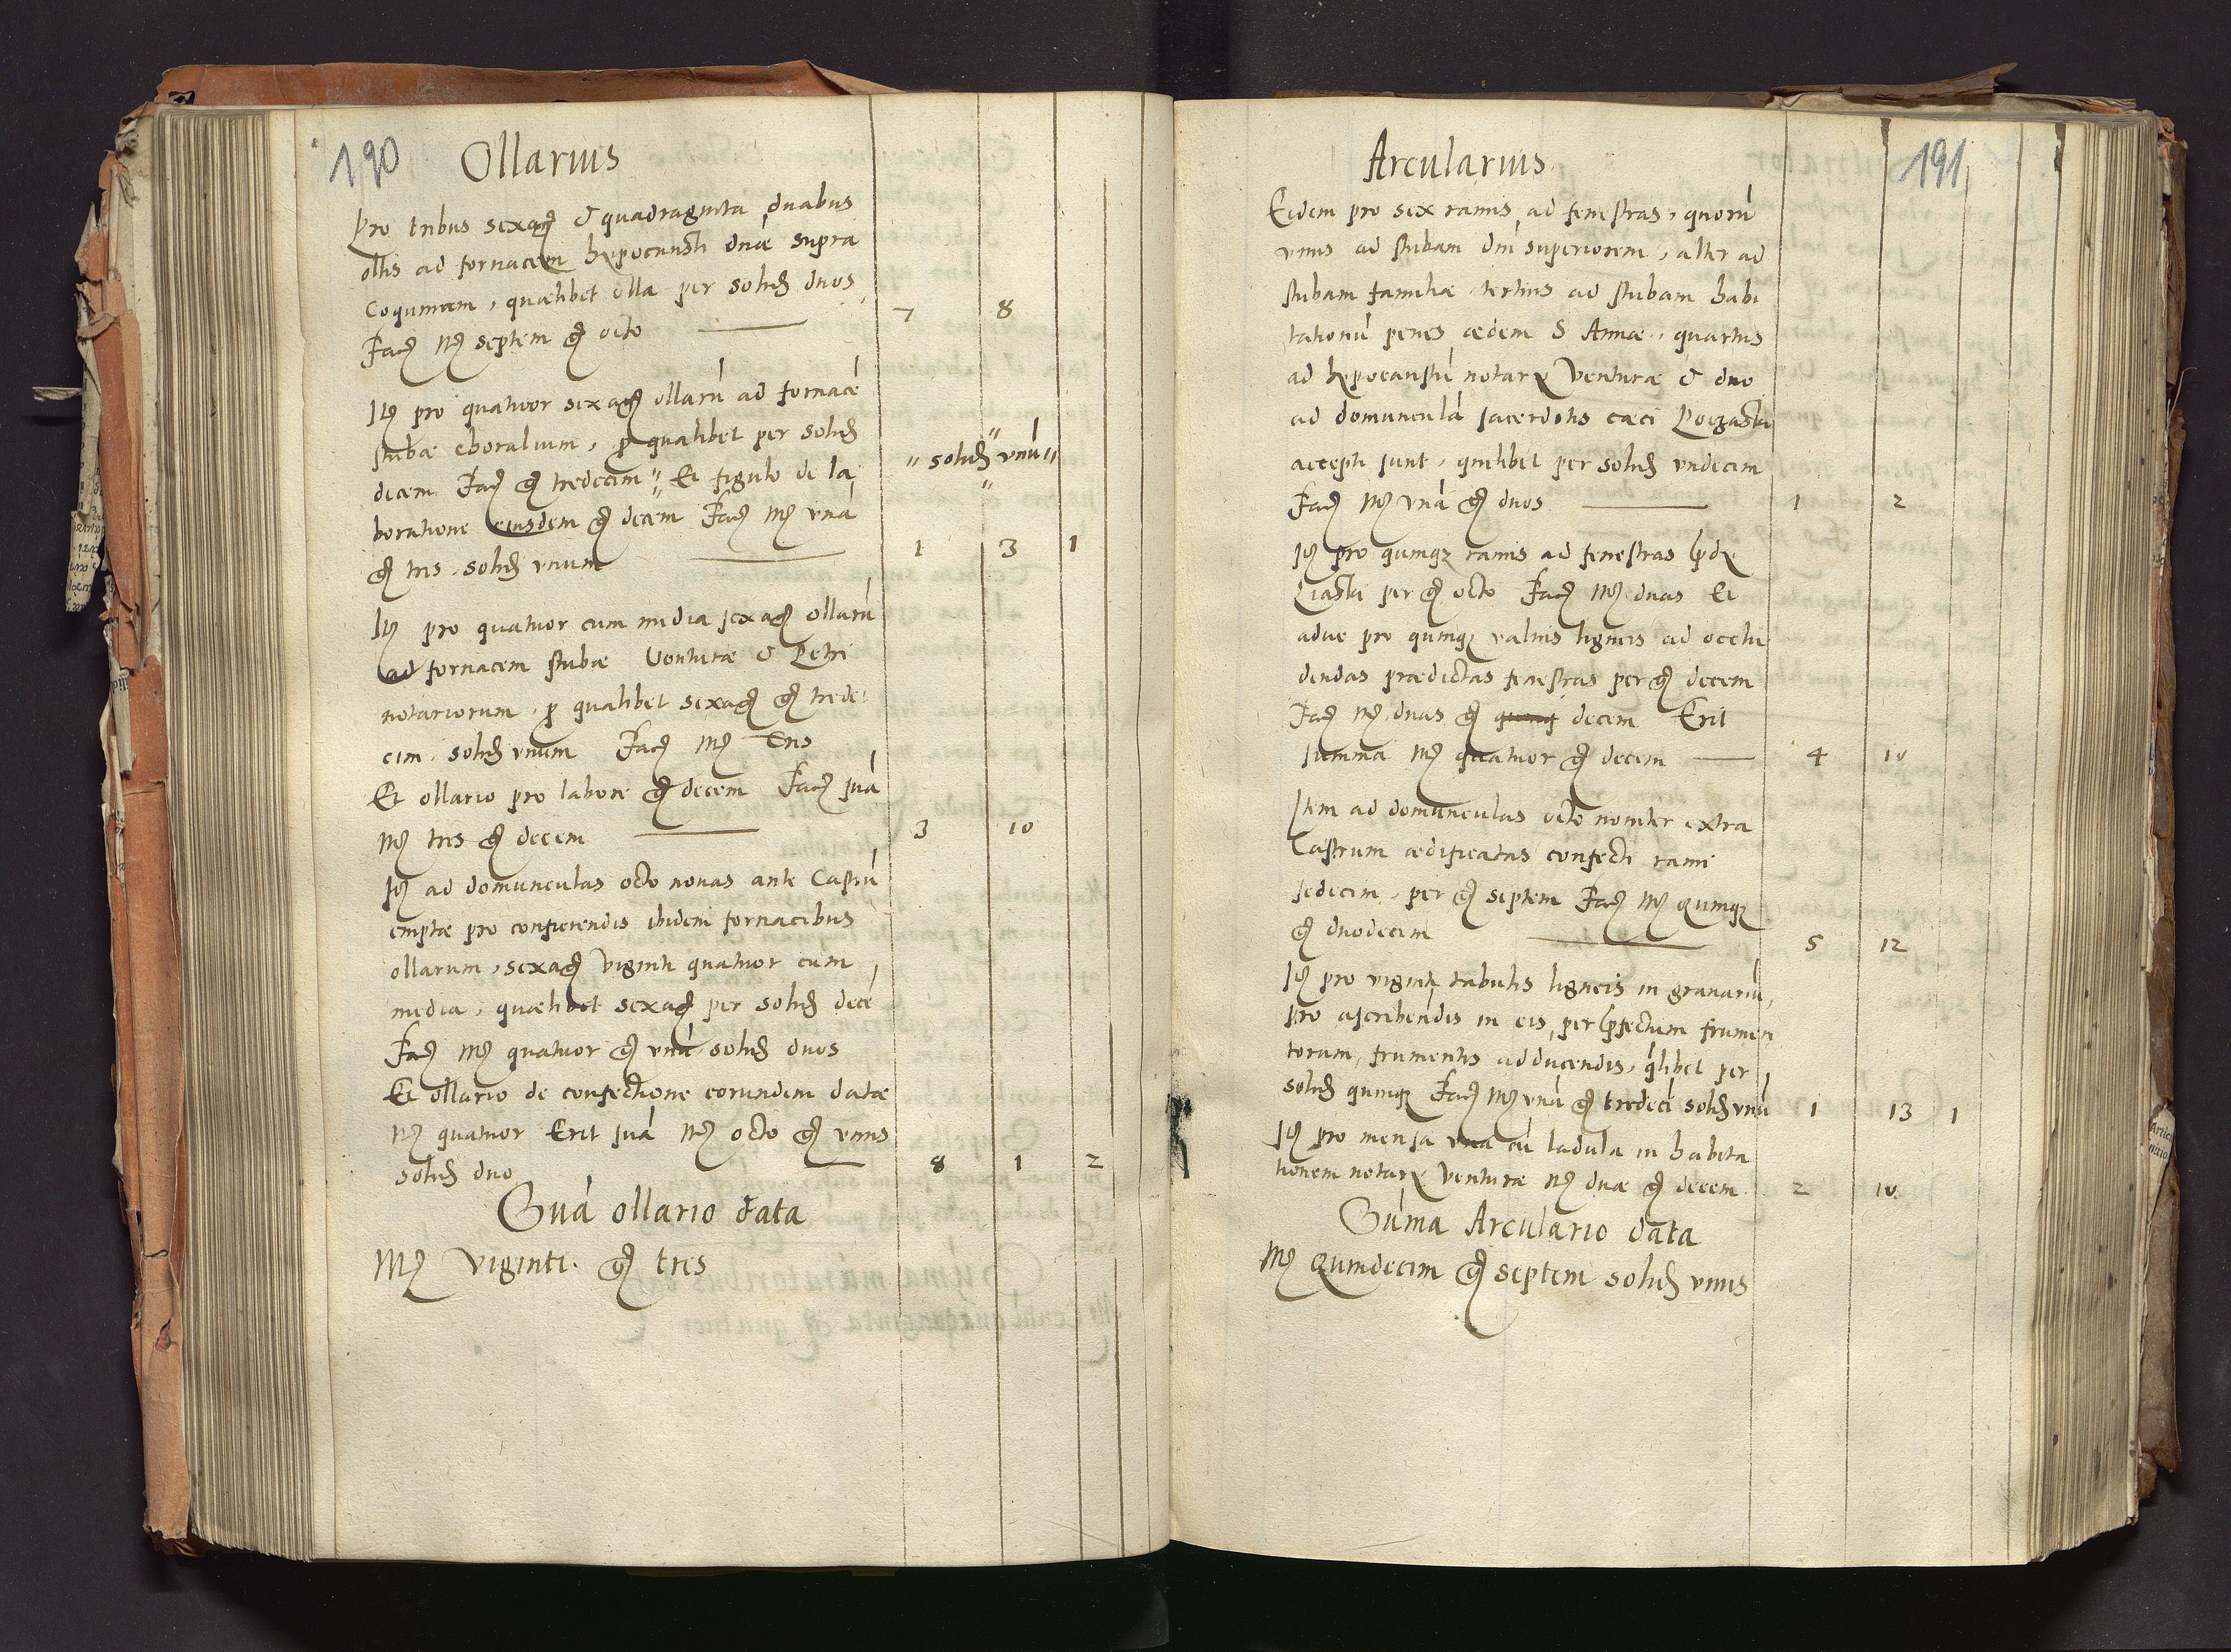 190
Ollarius
Pro tribus sexag et quadraginta duabus
ollis ad fornacem hypocausti dnae supra
Coquinam, quaelibet olla per solid duos
Facit Mr septem gr octo 7 8
Itm pro quatuor sexag ollarū ad fornacē
stubae choralium, pr qualibet per solid
decem Facit gr tredecim " Et figulo de la " solid unū "
boratione eiusdem gr decem Facit Mr unā
gr tris solid unum 1 3 1
Itm pro quatuor cum media sexag ollarū
ad fornacem stubae Venturae et Petri
notariorum, pr qualibet sexag gr trede
cim solid unum Facit Mr tris
Et ollario pro labore gr decem Facit suā
Mr tris gr decem 3 10
Itm ad domunculas octo novas ante Castrū
emptae pro conficiendis ibidem fornacibus
ollarum, sexag viginti quatuor cum
media, quaelibet sexag per solid decē
Facit Mr quatuor gr unū solid duos
Et ollario de confectione eorundem datae
Mr quatuor Erit suā Mr octo gr unus
solid duo 8 1 2
Suā ollario data
Mr viginti gr tres
191
Arcularius
Eidem pro sex ramis ad fenestras, quorū
unus ad stubam dni superiorem, alter ad
stubam familiae tertius ad stubam habi
tationū penes aedem S Annae, quartus
ad hypocaustū notary Venturae et duo
ad domunculā sacerdotis caeci
accepti sunt, quilibet per solid undecim
Facit Mr unā gr duos 1 2
Itm pro quinqz ramis ad fenestras
per gr octo Facit Mr duas Et
aduc pro quinqz valvis ligneis ad occlu
dendas praedictas fenestras per gr decem
Facit Mr duas gr quinqz decem Erit
summa Mr quatuor gr decem 4 10
Item ad domunculas octo noviter extra
Castrum aedificatas confecti rami
sedecim, per gr septem Facit Mr quinqz
gr duodecim 5 12
Itm pro viginti tabulis ligneis in granariū,
pro ascribendis in eis, per pfectum frumen
torum, frumentis adducendis, qlibet per
solid quinqz Facit Mr unā gr tredeci solid unū 1 13 1
Itm pro mensa una cū ladula in habita
tionem notary Venturae Mr duae gr decem 2 10
Sūma Arculario data
Mr Quindecim gr septem solid unus